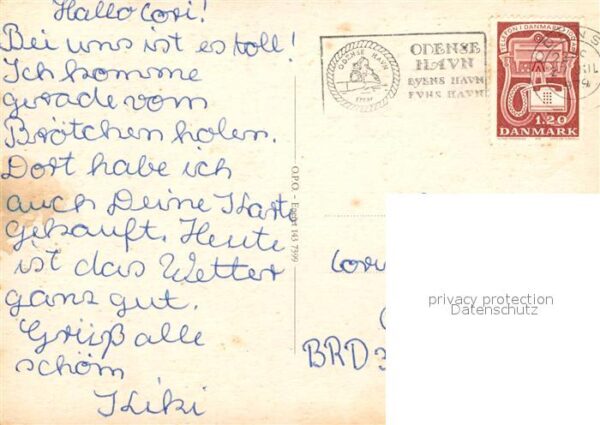 Hallo Cori!
Bei uns ist es toll!
Ich komme
gerade vom
Brötchen holen.
Dort habe ich
auch Deine Karte
gekauft. Heute
ist das Wetter
ganz gut.
Grüß alle
schöm
Kiki
ODENSE HAVN
ODENSE
HAVN
BYENS HAVN
FYNS HAVN
TELEFON I DANMARK
1.20
DANMARK
O.P.O. - Eneret 143 7399
Cori
BRD 3
privacy protection
Datenschutz